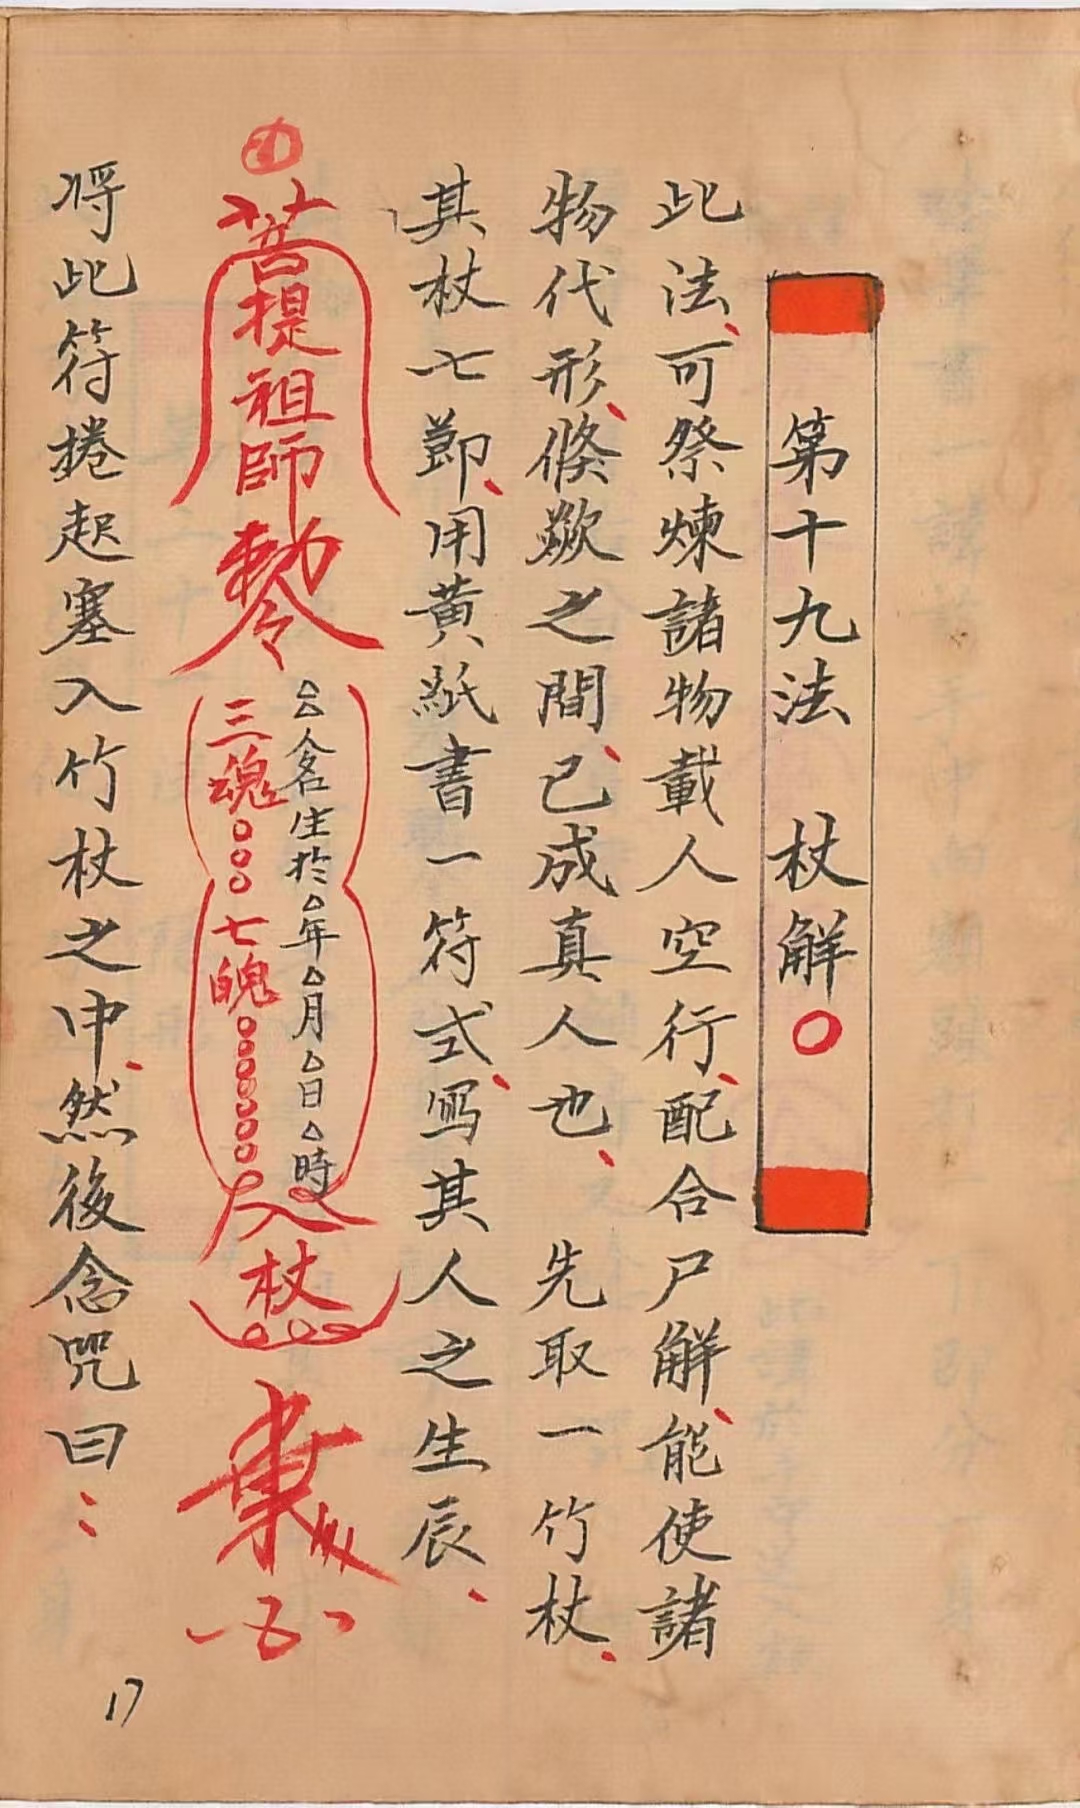 第十九法 杖解○
此法、可祭煉諸物載人空行、配合尸解、能使諸
物代形、倏歘之間、已成真人也、 先取一竹杖、
其杖七節、用黃紙書一符式、寫其人之生辰、
①
菩提祖師勅令
△人名生於△年△月△日△時
三魂○○○七魄○○○○○○○
入杖
將此符捲起塞入竹杖之中、然後念咒曰：
17